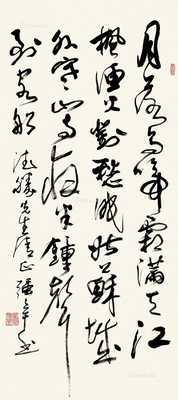 月落乌啼霜满天江
枫渔火对愁眠姑苏城
外寒山寺夜半钟声
到客船 德胜先生清正